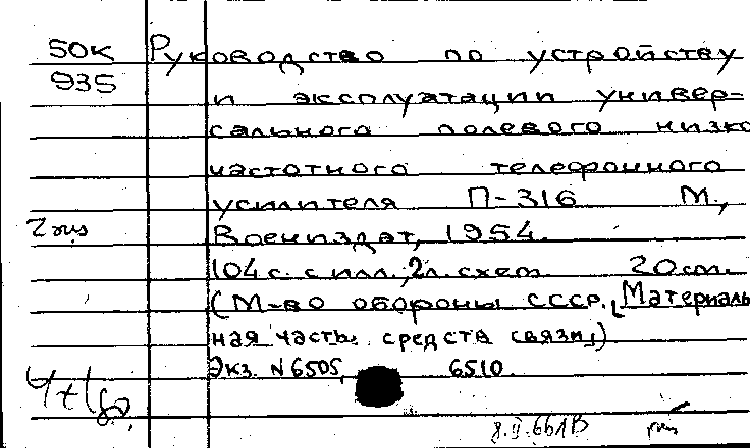 50К Руководство по устройству
935
и эксплуатации универ-
сального полевого низко
частотного телефонного
усилителя П-316 М.,
Воениздат, 1954.
104 с. с илл.; 2 л. схем. 20 см.
(М-во обороны СССР. Материаль
ная часть средств связи.)
Экз. N 6505, 6510.